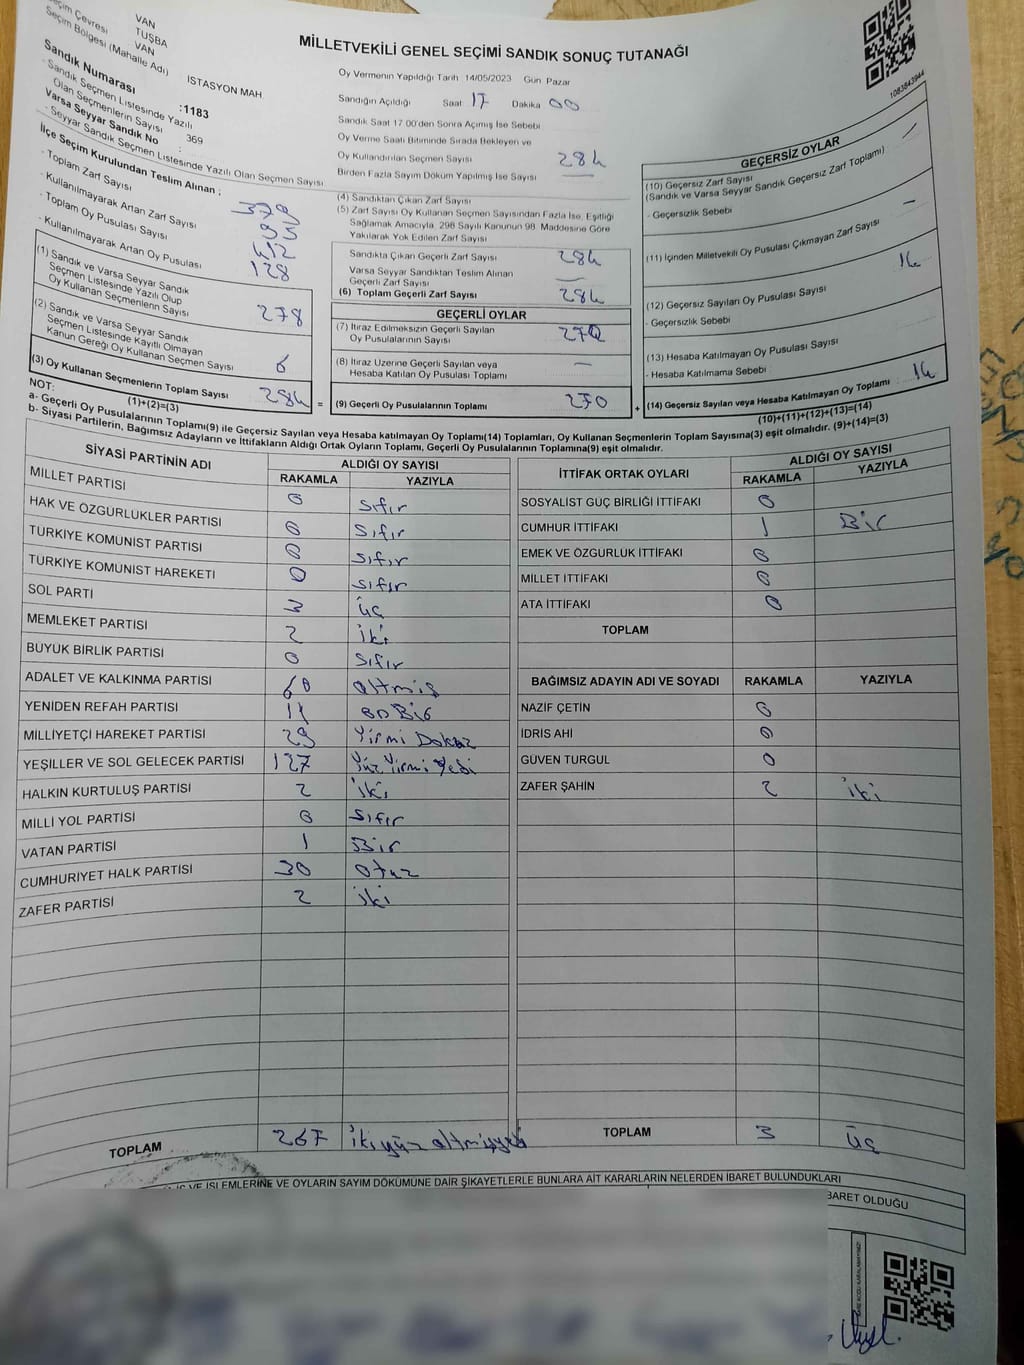 VAN
TUŞBA
VAN
Seçim Çevresi
Seçim Bölgesi (Mahalle Adı) İSTASYON MAH.
MİLLETVEKİLİ GENEL SEÇİMİ SANDIK SONUÇ TUTANAĞI
1083843944
Sandık Numarası :1183
- Sandık Seçmen Listesinde Yazılı
Olan Seçmenlerin Sayısı 369
Varsa Seyyar Sandık No :
- Seyyar Sandık Seçmen Listesinde Yazılı Olan Seçmen Sayısı
İlçe Seçim Kurulundan Teslim Alınan ;
- Toplam Zarf Sayısı
- Kullanılmayarak Artan Zarf Sayısı
- Toplam Oy Pusulası Sayısı 412
- Kullanılmayarak Artan Oy Pusulası 128
(1) Sandık ve Varsa Seyyar Sandık
Seçmen Listesinde Yazılı Olup
Oy Kullanan Seçmenlerin Sayısı 278
(2) Sandık ve Varsa Seyyar Sandık
Seçmen Listesinde Kayıtlı Olmayan
Kanun Gereği Oy Kullanan Seçmen Sayısı 6
(3) Oy Kullanan Seçmenlerin Toplam Sayısı 284
(1)+(2)=(3)
Oy Vermenin Yapıldığı Tarih 14/05/2023 Gün Pazar
Sandığın Açıldığı Saat 17 Dakika 00
Sandık Saat 17.00'den Sonra Açılmış İse Sebebi
Oy Verme Saati Bitiminde Sırada Bekleyen ve
Oy Kullandırılan Seçmen Sayısı 284
Birden Fazla Sayım Döküm Yapılmış İse Sayısı —
(4) Sandıktan Çıkan Zarf Sayısı
(5) Zarf Sayısı Oy Kullanan Seçmen Sayısından Fazla İse, Eşitliği
Sağlamak Amacıyla, 298 Sayılı Kanunun 98. Maddesine Göre
Yakılarak Yok Edilen Zarf Sayısı
Sandıkta Çıkan Geçerli Zarf Sayısı 284
Varsa Seyyar Sandıktan Teslim Alınan
Geçerli Zarf Sayısı —
(6) Toplam Geçerli Zarf Sayısı 284
GEÇERLİ OYLAR
(7) İtiraz Edilmeksizin Geçerli Sayılan
Oy Pusulalarının Sayısı 270
(8) İtiraz Üzerine Geçerli Sayılan veya
Hesaba Katılan Oy Pusulası Toplamı —
= (9) Geçerli Oy Pusulalarının Toplamı 270 +
GEÇERSİZ OYLAR
(10) Geçersiz Zarf Sayısı —
(Sandık ve Varsa Seyyar Sandık Geçersiz Zarf Toplamı)
- Geçersizlik Sebebi
(11) İçinden Milletvekili Oy Pusulası Çıkmayan Zarf Sayısı —
(12) Geçersiz Sayılan Oy Pusulası Sayısı 14
- Geçersizlik Sebebi
(13) Hesaba Katılmayan Oy Pusulası Sayısı
- Hesaba Katılmama Sebebi
(14) Geçersiz Sayılan veya Hesaba Katılmayan Oy Toplamı : 14
(10)+(11)+(12)+(13)=(14)
NOT:
a- Geçerli Oy Pusulalarının Toplamı(9) ile Geçersiz Sayılan veya Hesaba katılmayan Oy Toplamı(14) Toplamları, Oy Kullanan Seçmenlerin Toplam Sayısına(3) eşit olmalıdır. (9)+(14)=(3)
b- Siyasi Partilerin, Bağımsız Adayların ve İttifakların Aldığı Ortak Oyların Toplamı, Geçerli Oy Pusulalarının Toplamına(9) eşit olmalıdır.
SİYASİ PARTİNİN ADI ALDIĞI OY SAYISI
RAKAMLA YAZIYLA
MİLLET PARTİSİ 0 sıfır
HAK VE ÖZGÜRLÜKLER PARTİSİ 0 sıfır
TÜRKİYE KOMÜNİST PARTİSİ 0 sıfır
TÜRKİYE KOMÜNİST HAREKETİ 0 sıfır
SOL PARTİ 3 üç
MEMLEKET PARTİSİ 2 iki
BÜYÜK BİRLİK PARTİSİ 0 sıfır
ADALET VE KALKINMA PARTİSİ 60 altmış
YENİDEN REFAH PARTİSİ 11 on Bir
MİLLİYETÇİ HAREKET PARTİSİ 29 Yirmi Dokuz
YEŞİLLER VE SOL GELECEK PARTİSİ 127 Yüz Yirmi Yedi
HALKIN KURTULUŞ PARTİSİ 2 iki
MİLLİ YOL PARTİSİ 0 sıfır
VATAN PARTİSİ 1 Bir
CUMHURİYET HALK PARTİSİ 30 otuz
ZAFER PARTİSİ 2 iki
TOPLAM 267 ikiyüz altmışyedi
İTTİFAK ORTAK OYLARI ALDIĞI OY SAYISI
RAKAMLA YAZIYLA
SOSYALİST GÜÇ BİRLİĞİ İTTİFAKI 0
CUMHUR İTTİFAKI 1 Bir
EMEK VE ÖZGÜRLÜK İTTİFAKI 0
MİLLET İTTİFAKI 0
ATA İTTİFAKI 0
TOPLAM
BAĞIMSIZ ADAYIN ADI VE SOYADI RAKAMLA YAZIYLA
NAZİF ÇETİN 0
İDRİS AHİ 0
GÜVEN TURGUL 0
ZAFER ŞAHİN 2 iki
TOPLAM 3 üç
VE İŞLEMLERİNE VE OYLARIN SAYIM DÖKÜMÜNE DAİR ŞİKAYETLERLE BUNLARA AİT KARARLARIN NELERDEN İBARET BULUNDUKLARI
İBARET OLDUĞU